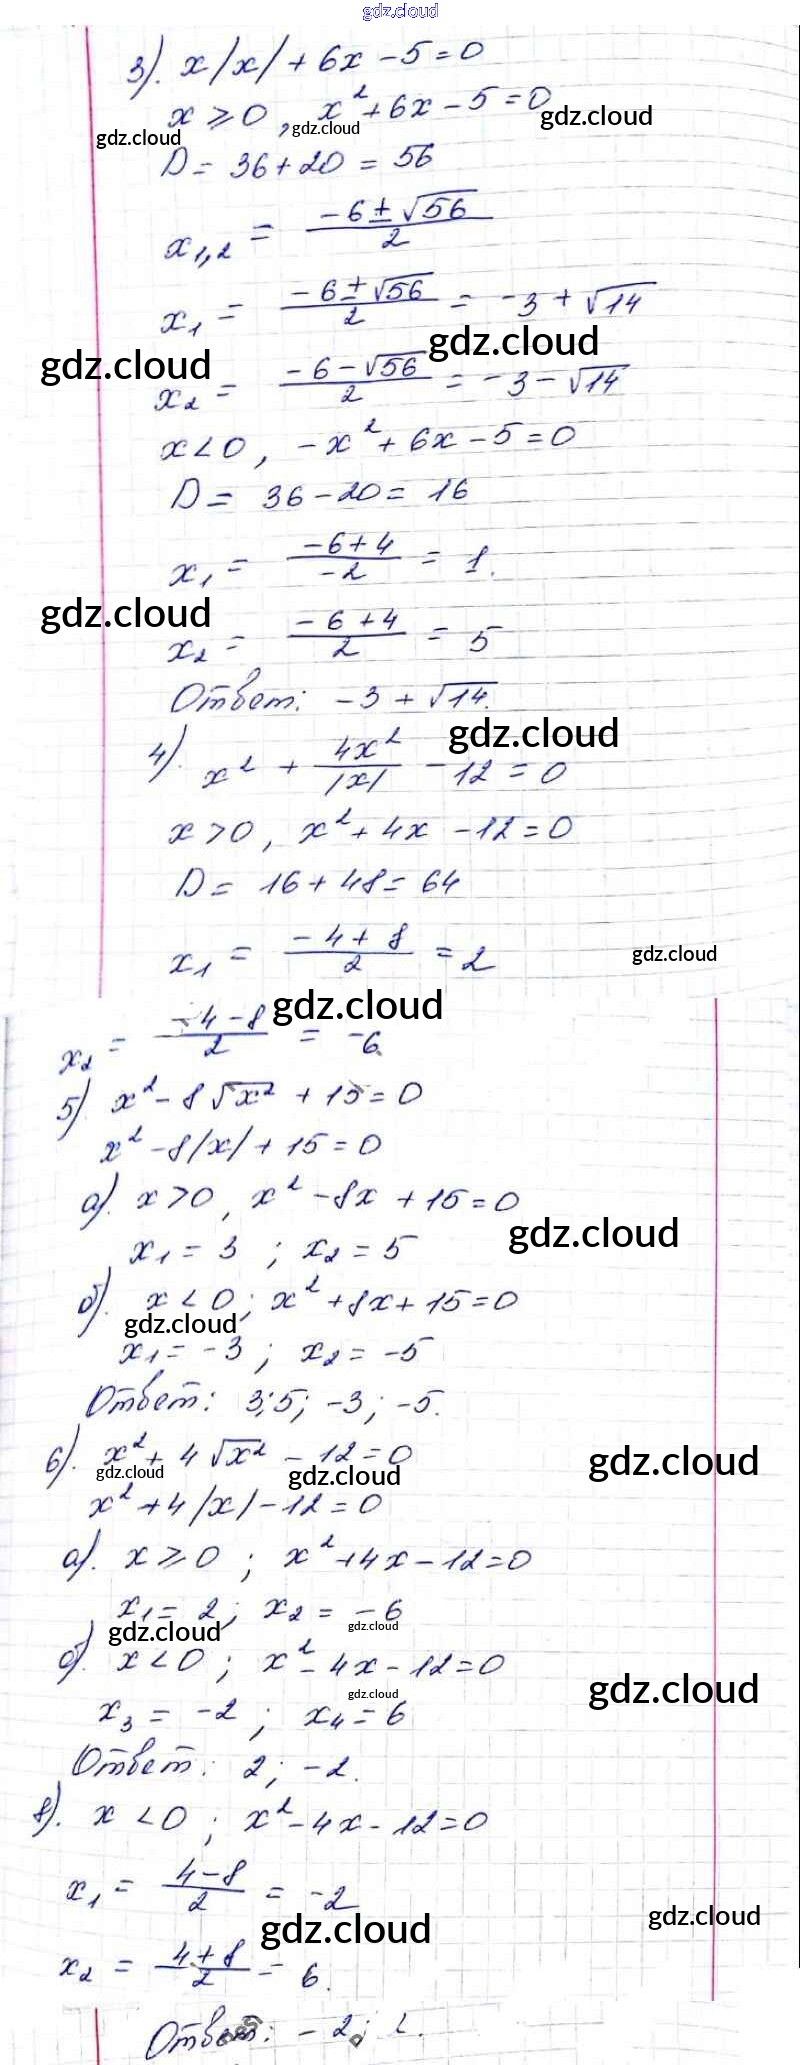 gdz.cloud
3). x|x| + 6x - 5 = 0
x ≥ 0, x² + 6x - 5 = 0
gdz.cloud gdz.cloud gdz.cloud
D = 36 + 20 = 56
x₁,₂ = (-6 ± √56)/2
x₁ = (-6 ± √56)/2 = -3 + √14
gdz.cloud gdz.cloud
x₂ = (-6 - √56)/2 = -3 - √14
x < 0, -x² + 6x - 5 = 0
D = 36 - 20 = 16
x₁ = (-6 + 4)/-2 = 1.
gdz.cloud
x₂ = (-6 + 4)/2 = 5
Ответ: -3 + √14.
gdz.cloud
4). x² + 4x²/|x| - 12 = 0
x > 0, x² + 4x - 12 = 0
D = 16 + 48 = 64
x₁ = (-4 + 8)/2 = 2
gdz.cloud
gdz.cloud
x₂ = (-4 - 8)/2 = -6
5) x² - 8√x² + 15 = 0
x² - 8|x| + 15 = 0
а). x > 0, x² - 8x + 15 = 0
gdz.cloud
x₁ = 3 ; x₂ = 5
б). x < 0; x² + 8x + 15 = 0
gdz.cloud
x₁ = -3 ; x₂ = -5
Ответ: 3; 5; -3; -5.
6). x² + 4√x² - 12 = 0
gdz.cloud gdz.cloud gdz.cloud
x² + 4|x| - 12 = 0
а). x ≥ 0 ; x² + 4x - 12 = 0
x₁ = 2; x₂ = -6
gdz.cloud gdz.cloud
б). x < 0 ; x² - 4x - 12 = 0
gdz.cloud gdz.cloud
x₃ = -2 ; x₄ = 6
Ответ: 2; -2.
8). x < 0 ; x² - 4x - 12 = 0
x₁ = (4 - 8)/2 = -2
gdz.cloud gdz.cloud
x₂ = (4 + 8)/2 = 6.
Ответ: -2; 2.